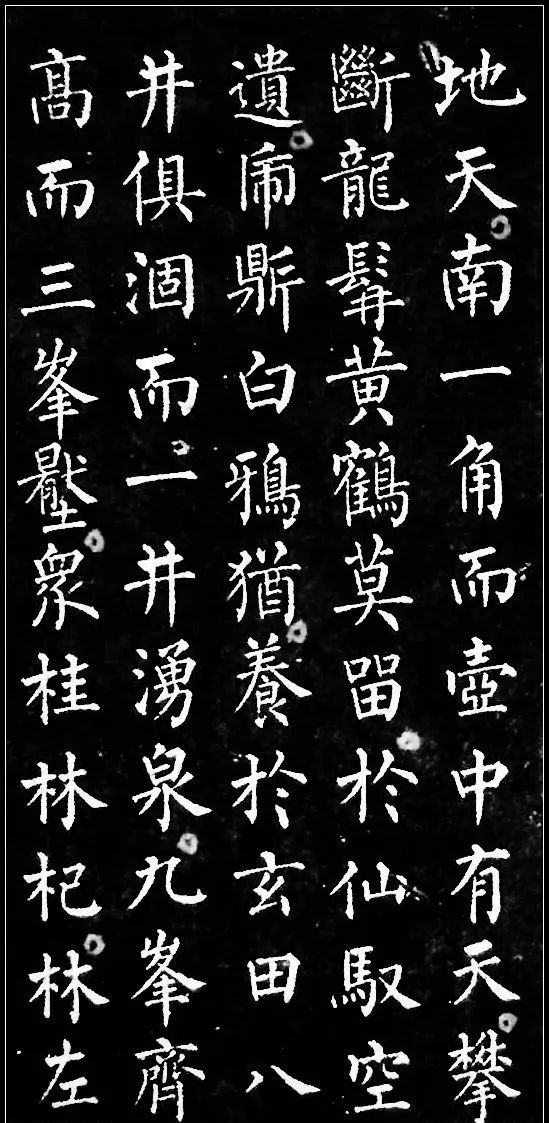 地天南一角而壺中有天攀
斷龍髯黃鶴莫畱於仙馭空
遺鼎白鴉猶養於玄田八
井俱涸而一井湧泉九峯齊
髙而三峯壓衆桂林杞林左